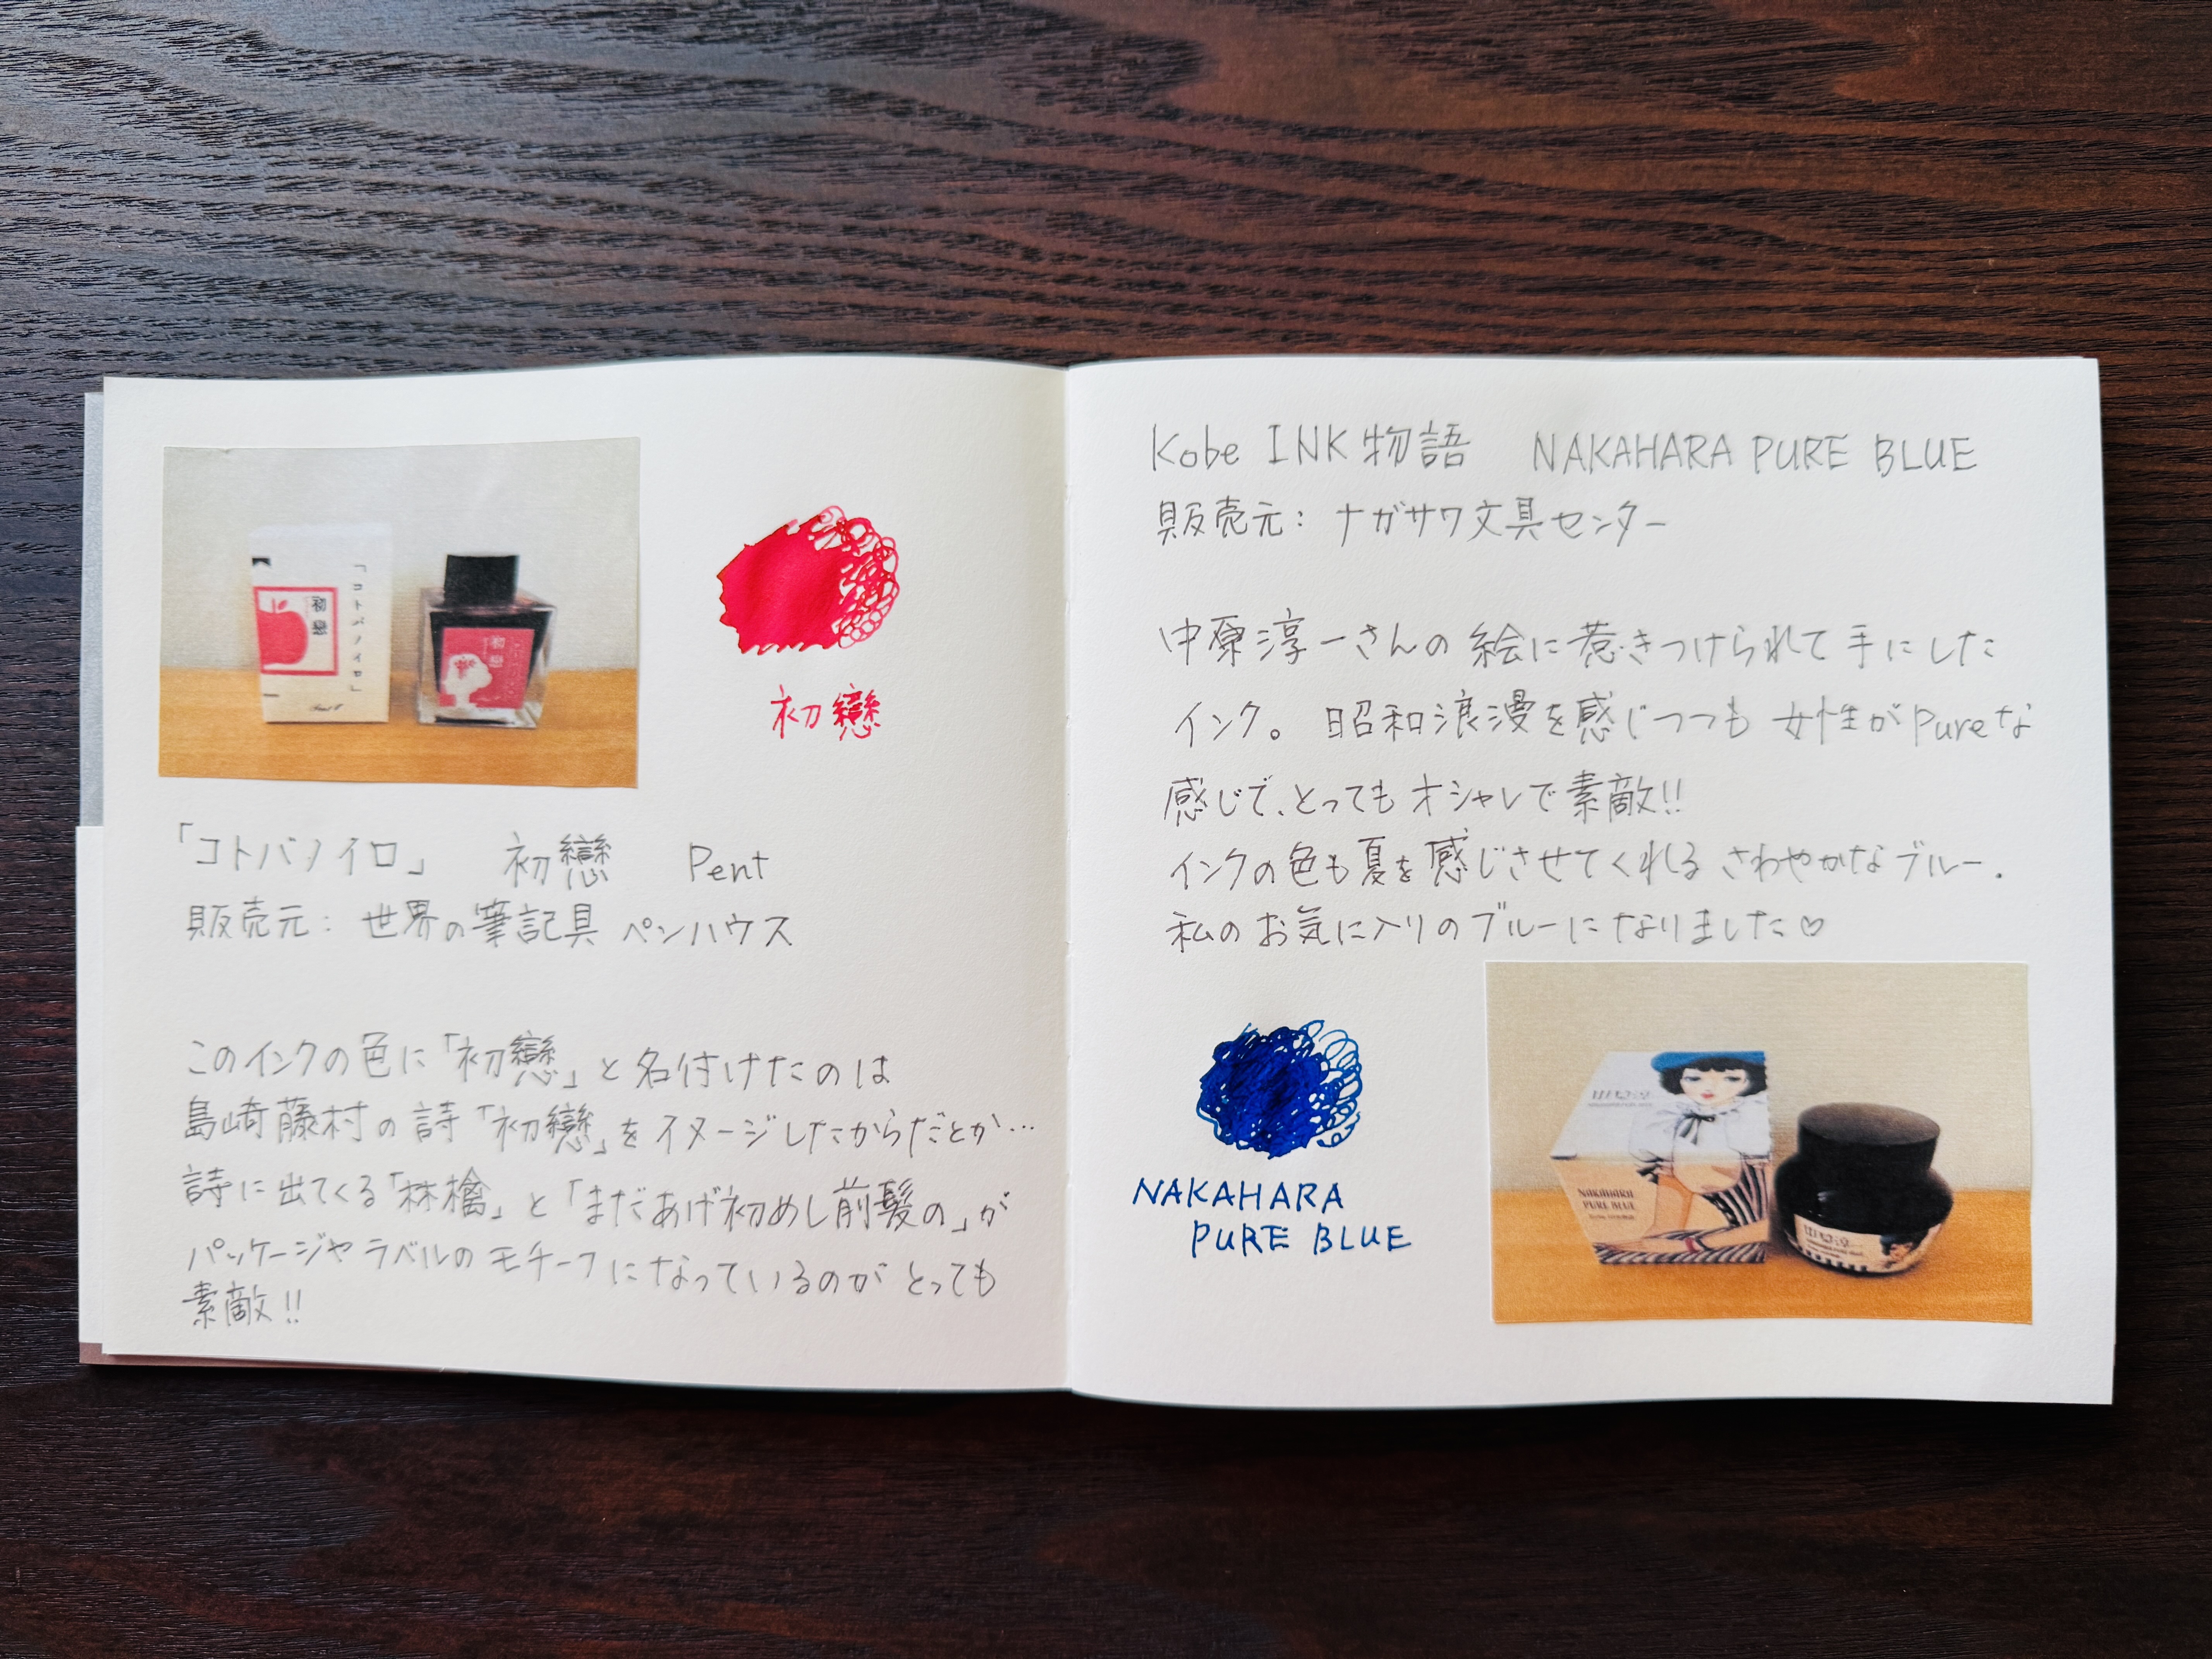 「コトバノイロ」
初戀
初戀
初戀
「コトバノイロ」 初戀 Pent
販売元: 世界の筆記具 ペンハウス
このインクの色に「初戀」と名付けたのは
島崎藤村の詩「初戀」をイメージしたからだとか…
詩に出てくる「林檎」と「まだあげ初めし前髪の」が
パッケージやラベルのモチーフになっているのがとっても
素敵!!
Kobe INK物語 NAKAHARA PURE BLUE
販売元: ナガサワ文具センター
中原淳一さんの絵に惹きつけられて手にした
インク。昭和浪漫を感じつつも女性がpureな
感じで、とってもオシャレで素敵!!
インクの色も夏を感じさせてくれるさわやかなブルー.
私のお気に入りのブルーになりました♡
NAKAHARA
PURE BLUE
NAKAHARA
PURE BLUE